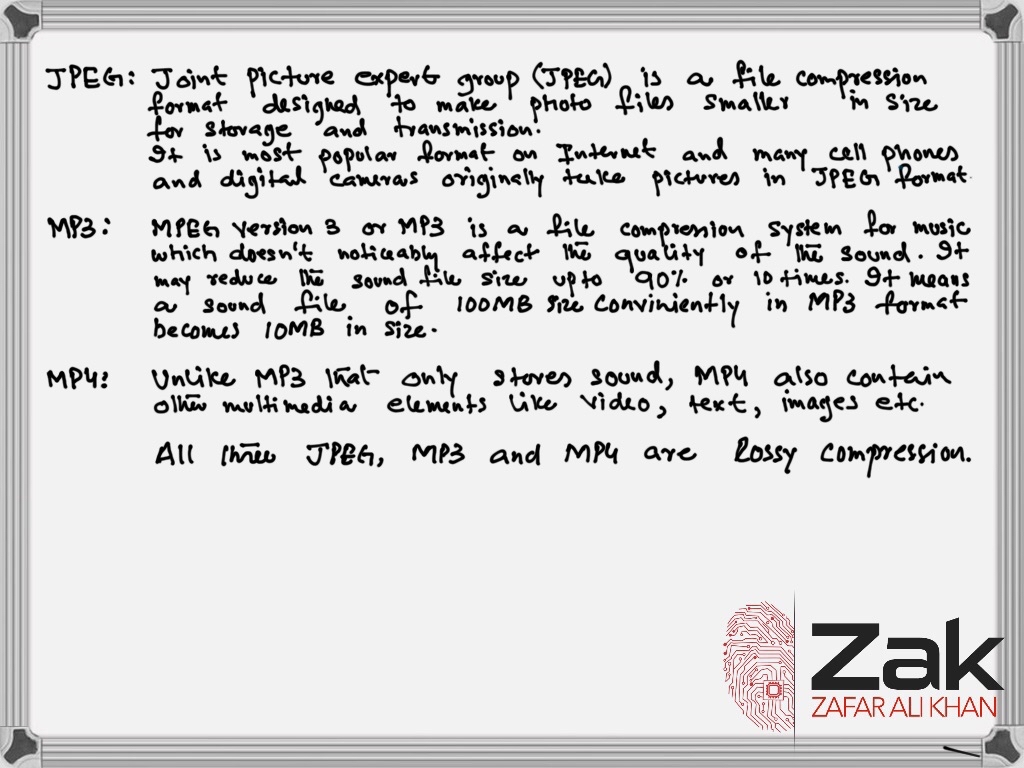 JPEG: Joint picture expert group (JPEG) is a file compression
format designed to make photo files smaller in size
for storage and transmission.
It is most popular format on Internet and many cell phones
and digital cameras originally take pictures in JPEG format.
MP3: MPEG version 3 or MP3 is a file compression system for music
which doesn't noticeably affect the quality of the sound. It
may reduce the sound file size upto 90% or 10 times. It means
a sound file of 100MB size conviniently in MP3 format
becomes 10MB in size.
MP4: Unlike MP3 that only stores sound, MP4 also contain
other multimedia elements like video, text, images etc.
All three JPEG, MP3 and MP4 are lossy compression.
Zak
ZAFAR ALI KHAN